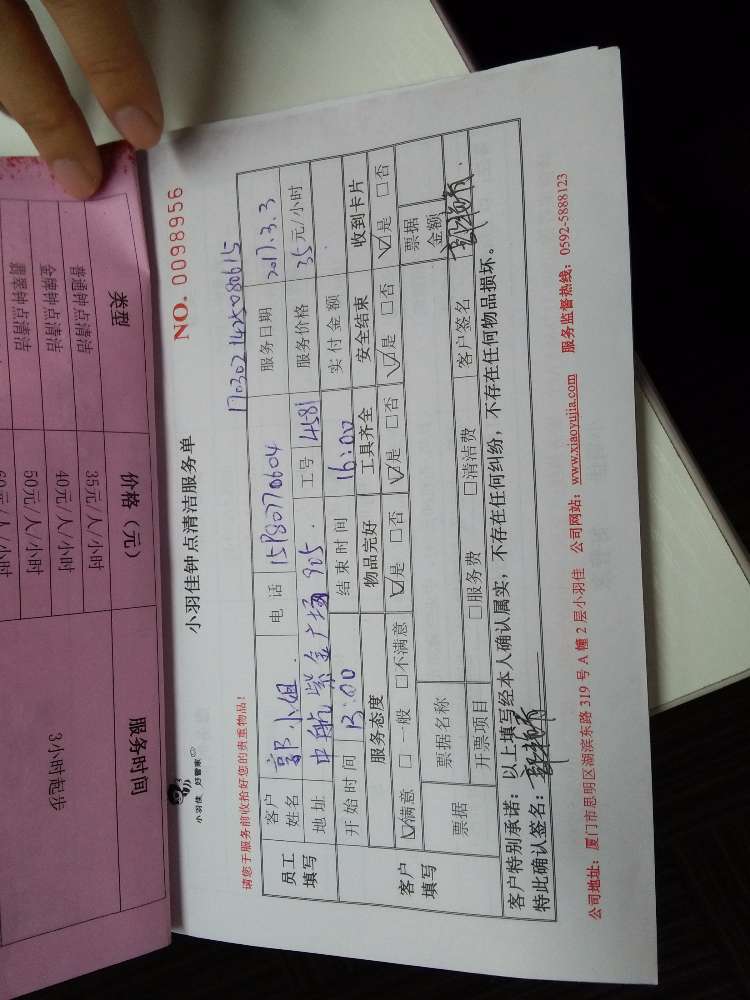 小羽佳 好管家
小羽佳钟点清洁服务单
NO. 0098956
请您于服务前收拾好您的贵重物品!
1703021425080615
员工填写
客户姓名 郭小姐. 电话 15980770604 服务日期 2017.3.3
地址 中航紫金广场 905. 工号 4581 服务价格 35元/小时
开始时间 13:00 结束时间 16:00 实付金额
客户填写
服务态度 物品完好 工具齐全 安全结束 收到卡片
☑满意 □一般 □不满意 ☑是 □否 ☑是 □否 ☑是 □否 ☑是 □否
票据 票据名称 票据金额
开票项目 □服务费 □清洁费 客户签名
客户特别承诺: 以上填写经本人确认属实,不存在任何纠纷,不存在任何物品损坏。
特此确认签名:
公司地址:厦门市思明区湖滨东路 319 号 A 幢 2 层小羽佳 公司网站:www.xiaoyujia.com 服务监督热线:0592-5888123
类型 价格(元) 服务时间
普通钟点清洁 35元/人/小时
金牌钟点清洁 40元/人/小时
翡翠钟点清洁 50元/人/小时
60元/人/小时
3小时起步